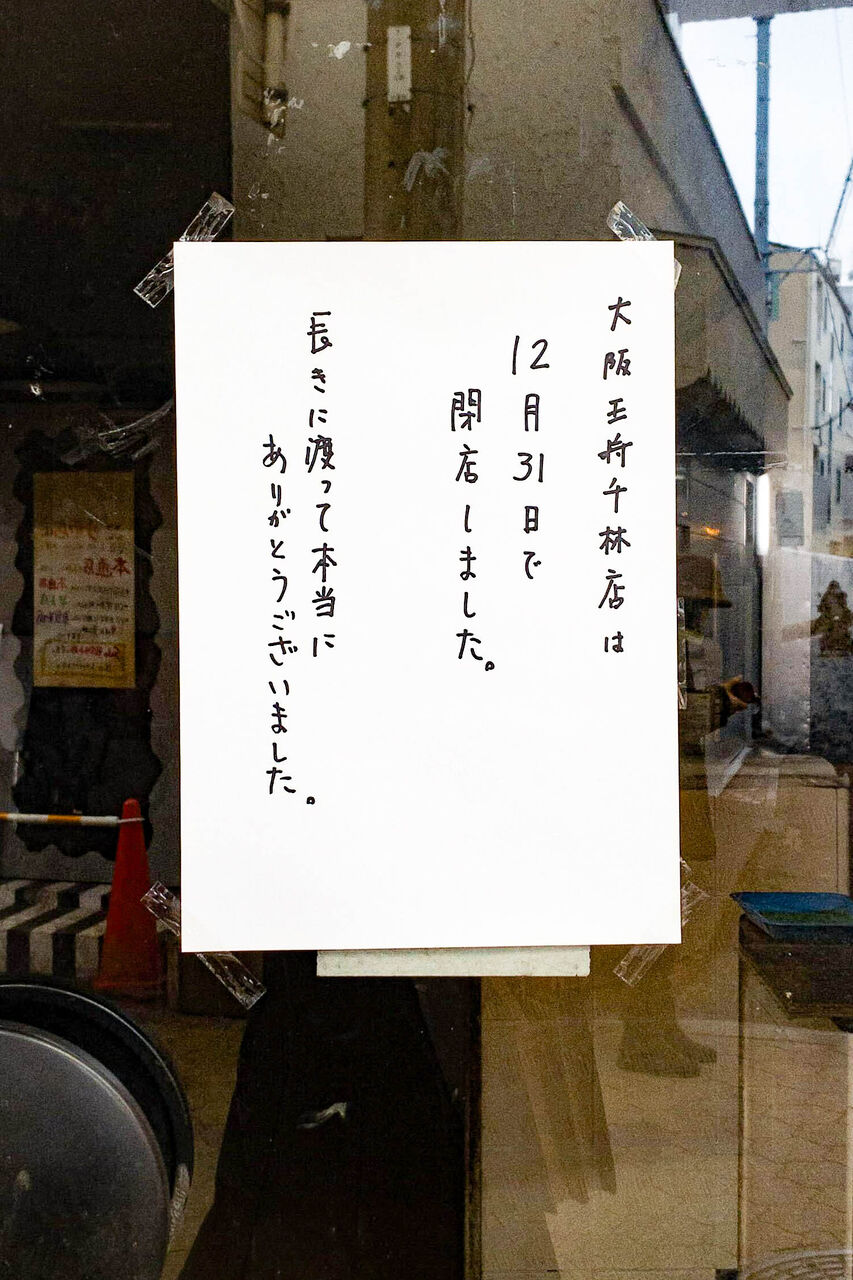 大阪王将千林店は
12月31日で
閉店しました。
長きに渡って本当に
ありがとうございました。